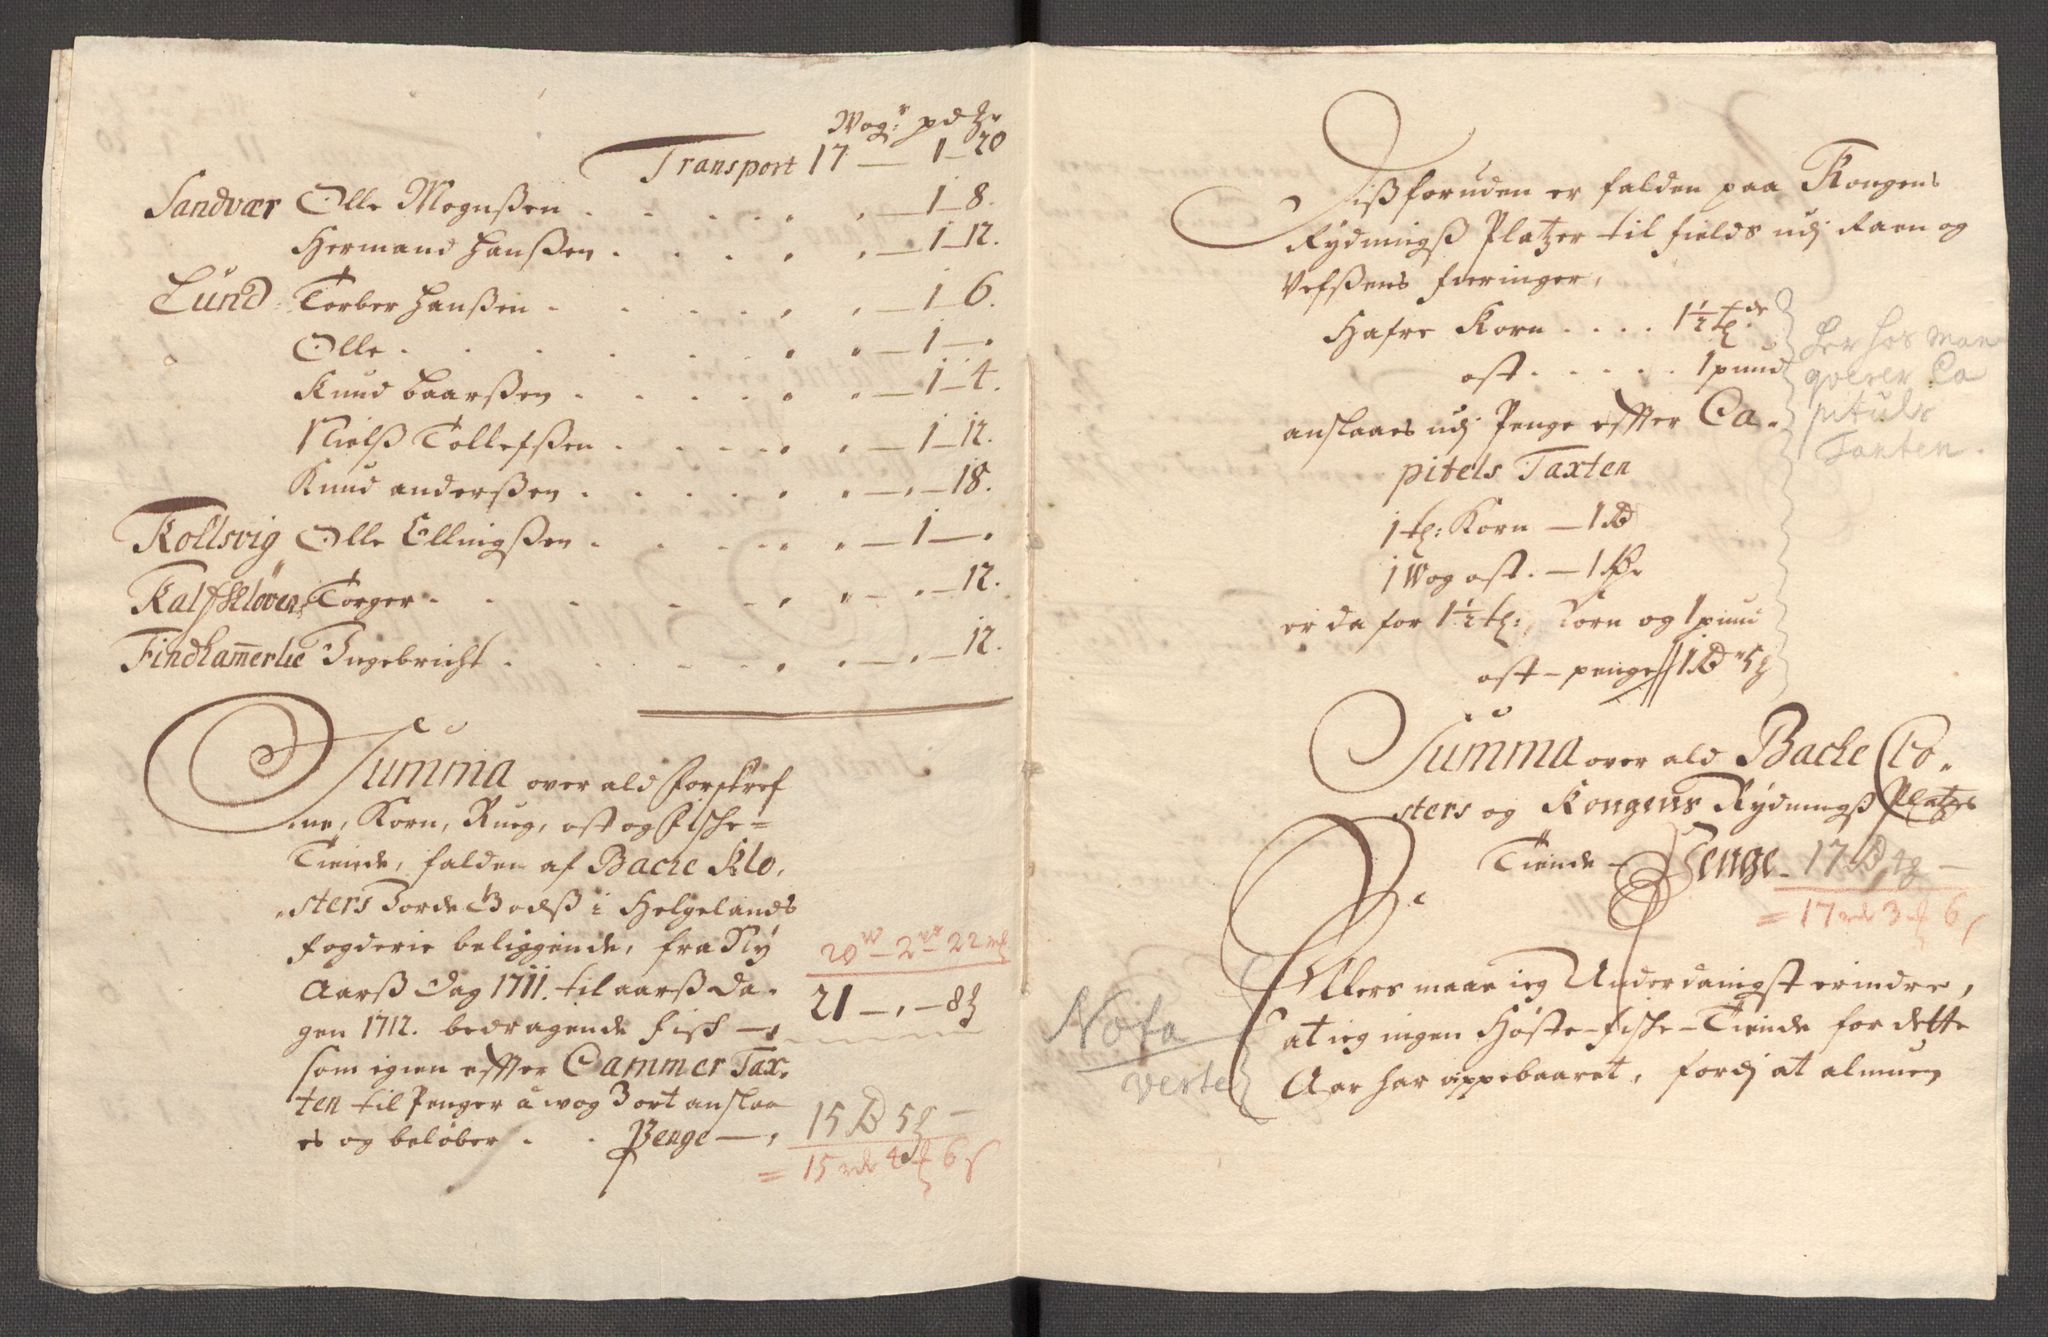 Wog:r pd
Transport 17 — 1 — 20
Sandvær Olle Mognßen . . . . . — 1 — 8.
Hermand Hanßen . . . . . — 1 — 12.
Lund Torber Hanßen . . . . . — 1 — 6.
Olle . . . . . . — 1 — .
Knud Baarßen . . . . . — 1 — 4.
Nielß Tollefsßen . . . . . — 1 — 12.
Knud anderßen . . . . . — . — 18.
Kollsvig Olle Ellingßen . . . . . — 1 — .
Kalfskløven Torger . . . . . — . — 12.
Findhammerlie Ingebricht . . . . . — . — 12.
Summa over ald forskref
ne, Korn, Rueg, ost og Fische=
Tiende, falden af Bache Klo,
sters Jorde Godß i Helgelands
fogderie beliggende, fra Ny
Aarß Dag 1711. til aarß Da-
gen 1712. bedragende fisch —
20 W — 2 — 22
21 — , — 8
som igien effter Cammer Tax,
ten til Penger a wog 3 ort anslaa
es og beløber . . Penge — , 15 5 —
= 15 4 6
Dißforuden er falden paa Kongens
Rydningß Platzer til fields udj Raen og
Vefßens fieringer,
Hafre Korn . . . . 1½ t:de
ost . . . . . 1 pund
anslaaes udj Penge effter Ca,
pitels Taxten
1 t: Korn — 1
1 Wog ost . — 1
er da for 1½ t: Korn og 1 pund
ost — penge 1 5
her hos man
qverer Ca
pituls
Taxten.
Summa over ald Bache Clo,
sters og Kongens Rydningß Platzes
Tiende — Penge — 17 4 —
= 17 3 6
Ellers maae ieg Underdanigst erindre,
at ieg ingen Høste-fische-Tiende for dette
Aar har oppebaaret, fordj at almuen
Nota
verte